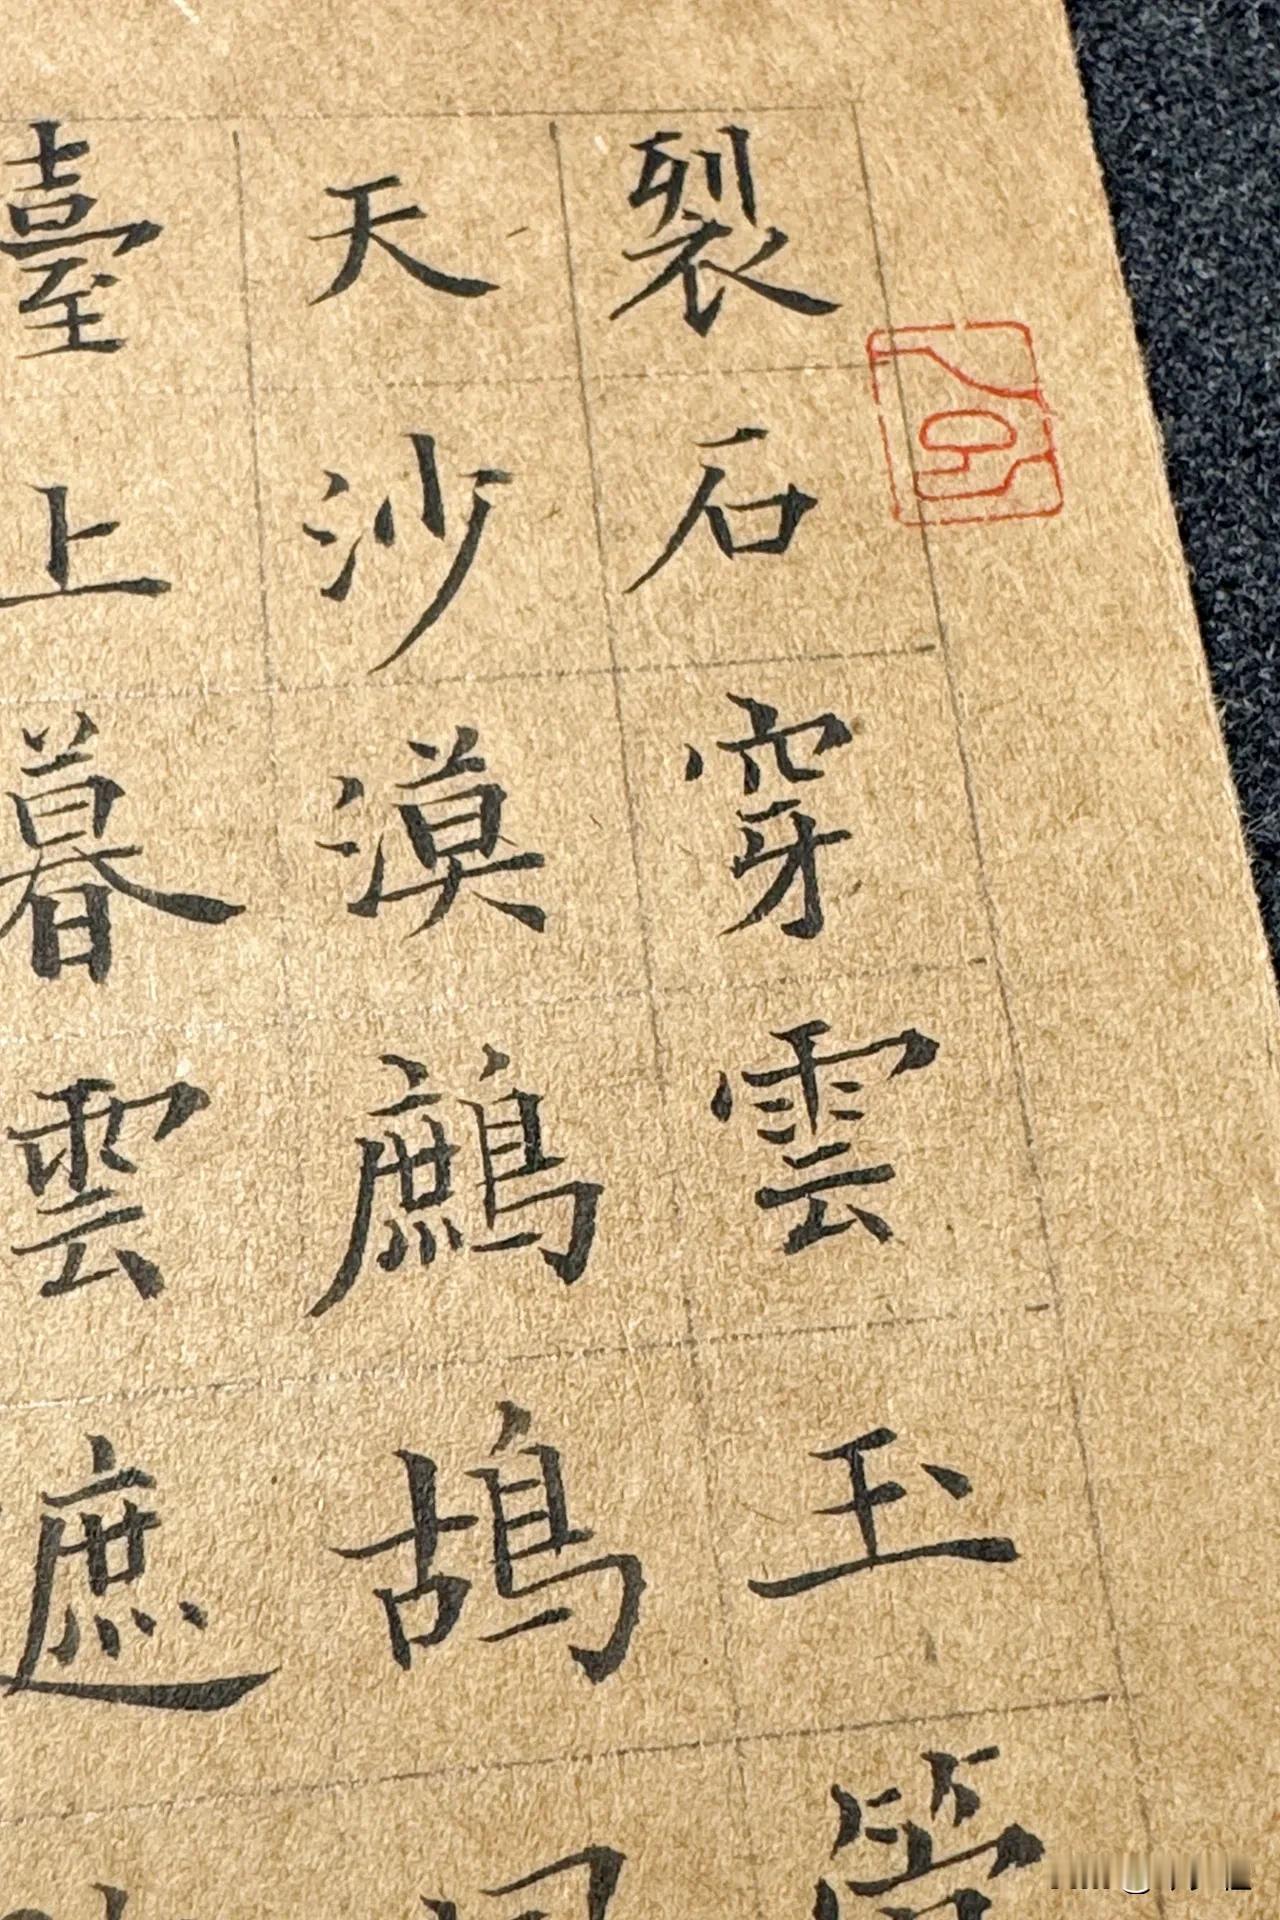 裂石穿雲玉管
天沙漠鷓鴣
臺上暮雲遮